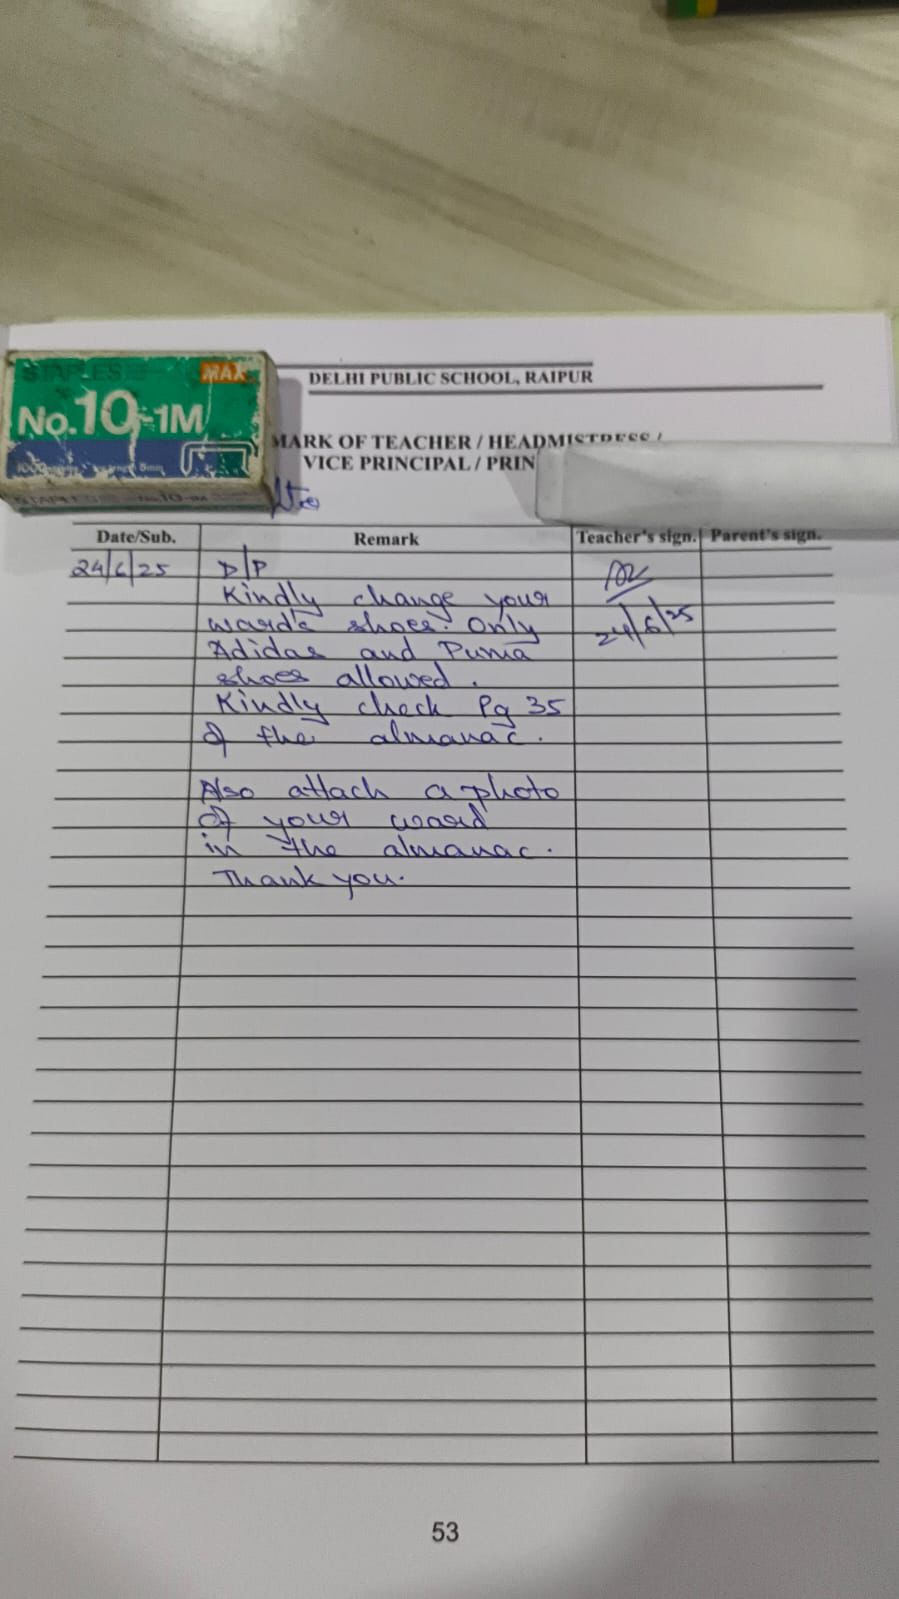 STAPLES
MAX
No.10-1M
DELHI PUBLIC SCHOOL, RAIPUR
MARK OF TEACHER / HEADMISTRESS /
VICE PRINCIPAL / PRIN
Date/Sub. Remark Teacher's sign. Parent's sign.
24/6/25 D/P
Kindly change your
ward's shoes. Only 24/6/25
Adidas and Puma
shoes allowed.
Kindly check Pg 35
of the almanac.
Also attach a photo
of your ward
in the almanac.
Thank you.
53